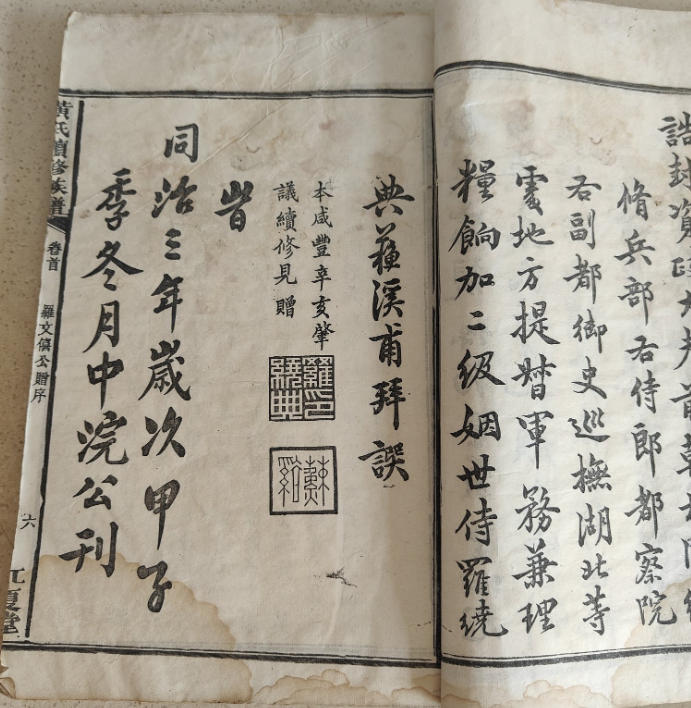 誥封資政大夫前
脩兵部右侍郎都察院
右副都御史巡撫湖北等
處地方提督軍務兼理
糧餉加二級姻世侍羅繞
典蘓溪甫拜譔
本咸豐辛亥肇
議續修見贈
羅繞典印
蘓溪
旹
同治三年歲次甲子
季冬月中浣公刊
黃氏續修族譜
卷首
羅文僖公贈序
六
江夏堂